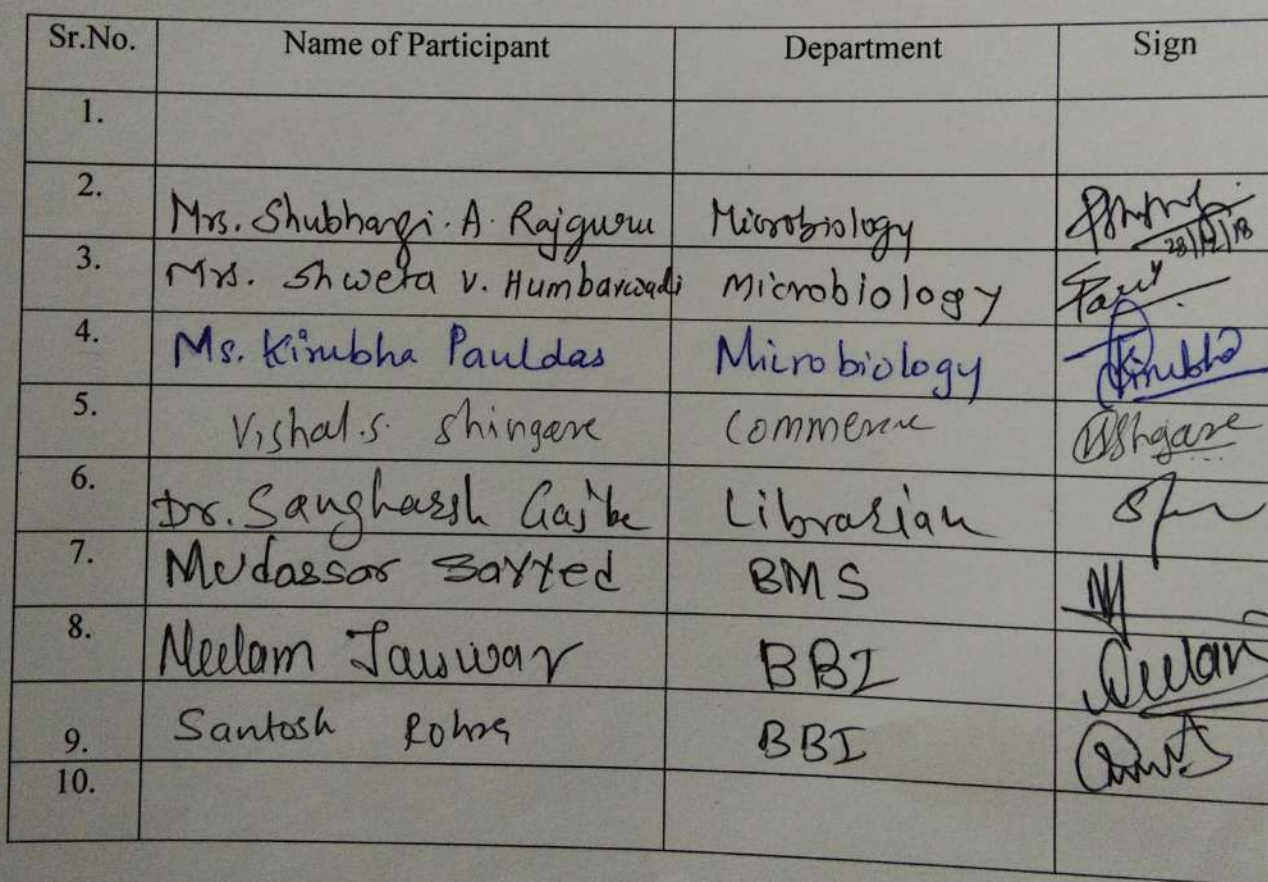 Sr.No. Name of Participant Department Sign
1.
2. Mrs. Shubhangi. A. Rajguru Microbiology 28/12/18
3. Mrs. Shweta V. Humbarwadi Microbiology
4. Ms. Kirubha Pauldas Microbiology Kirubha
5. Vishal. S. Shingare Commerce
6. Dr. Sangharsh Gajbe Librarian
7. Mudassar Sayyed BMS
8. Neelam Jauwar BBI Neelam
9. Santosh BBI
10.